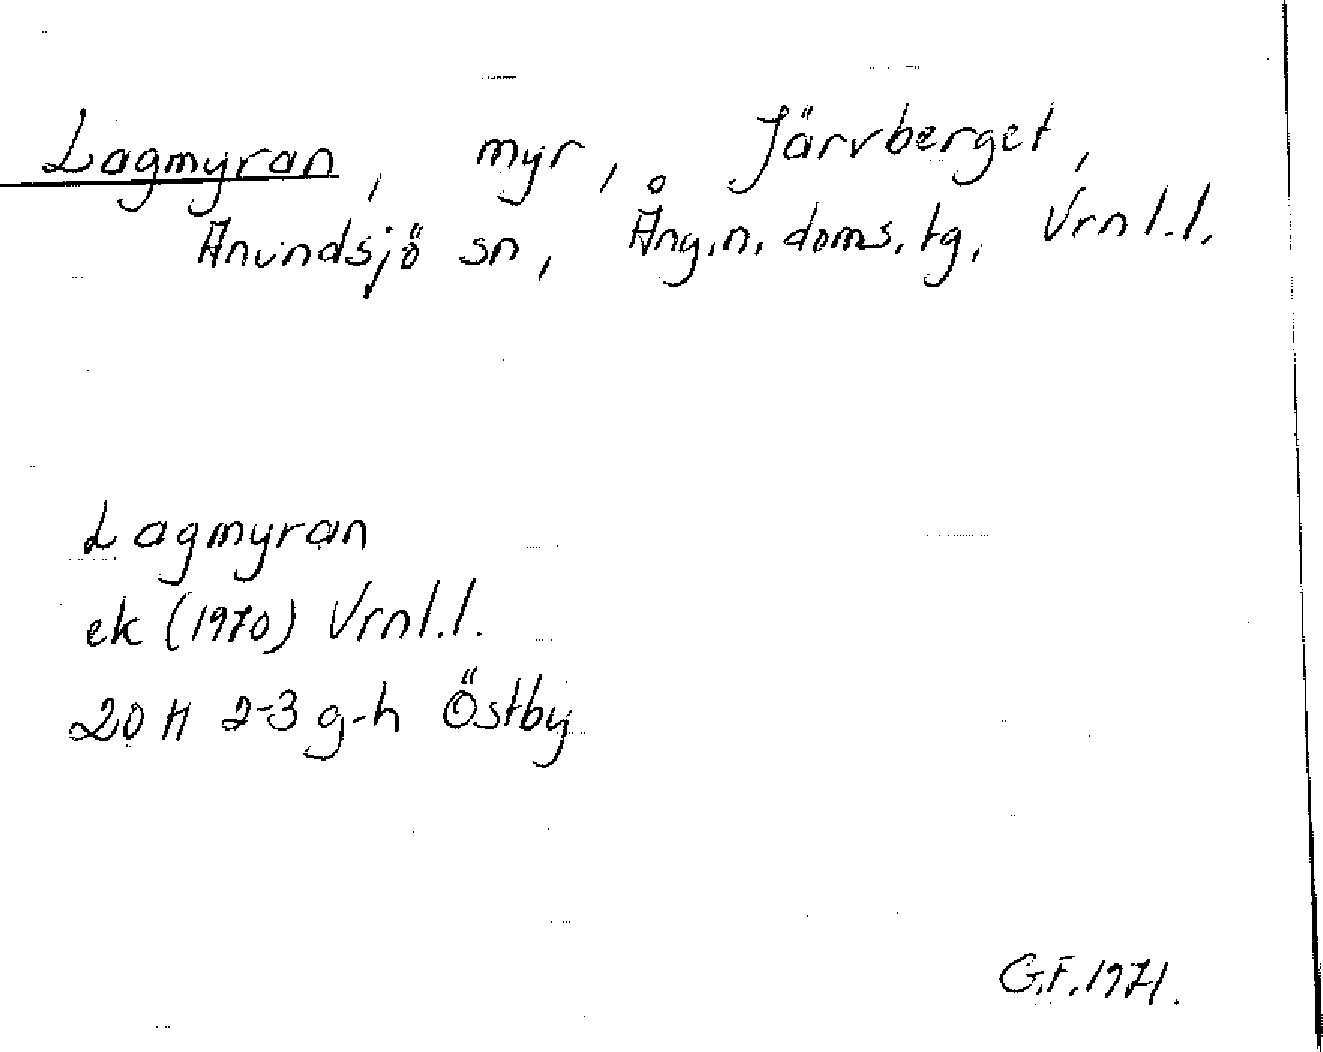 Lagmyran, myr, Järvberget,
Anundsjö sn, Ång.n. doms.tg, Vrnl.l.
Lagmyran
ek (1970) Vrnl.l.
20 H 2-3 g-h Östby
G.F. 1971.